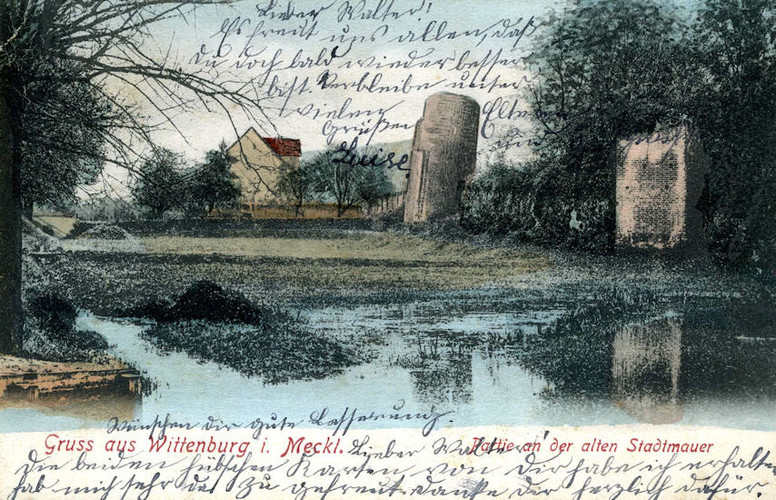 Lieber Walter!
Es freut uns allen, daß
du doch bald wieder besser
bist. Verbleibe unter
vielen
Grüßen Eltern
Luise
Wünschen dir gute Besserung.
Gruss aus Wittenburg i. Meckl.
Partie an der alten Stadtmauer
Lieber Walter!
Die beiden hübschen Karten von Dir habe ich erhalten
hab mich sehr dazu gefreut danke dir herzlich dafür